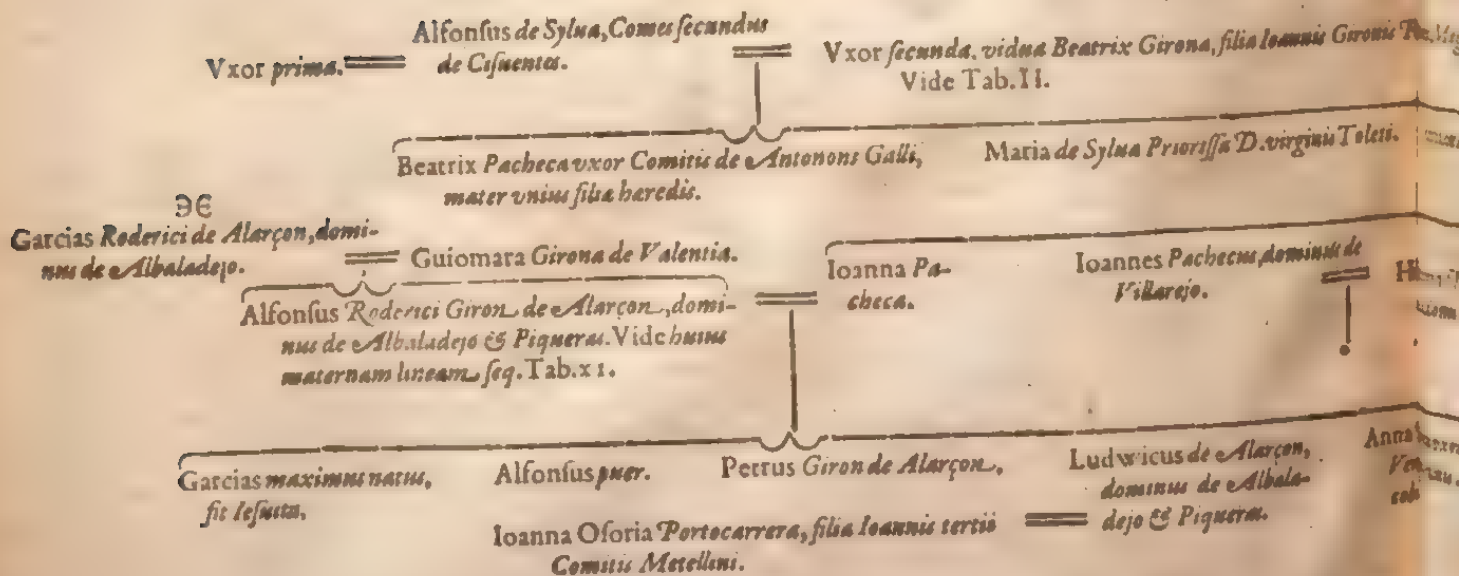 Vxor prima.
Alfonſus de Sylua, Comes ſecundus
de Ciſuentes.
Vxor ſecunda. vidua Beatrix Girona, filia Ioannis Gironis
Vide Tab. II.
Beatrix Pacheca vxor Comitis de Antonons Galli,
mater vnius filiæ hæredis.
Maria de Sylua Prioriſſa D. virginis Toleti.
Garcias Roderici de Alarçon, domi-
nus de Albaladejo.
Guiomara Girona de Valentia.
Alfonſus Roderici Giron de Alarçon, domi-
nus de Albaladejo & Piqueras. Vide huius
maternam lineam ſeq. Tab. xı.
Ioanna Pa-
checa.
Ioannes Pachecus, dominus de
Villarejo.
Garcias maximus natus,
fit Ieſuita.
Alfonſus puer.
Petrus Giron de Alarçon,
Ludwicus de Alarçon,
dominus de Albala-
dejo & Piqueras.
Anna
Ioanna Oſoria Portocarrera, filia Ioannis tertii
Comitis Metellini.